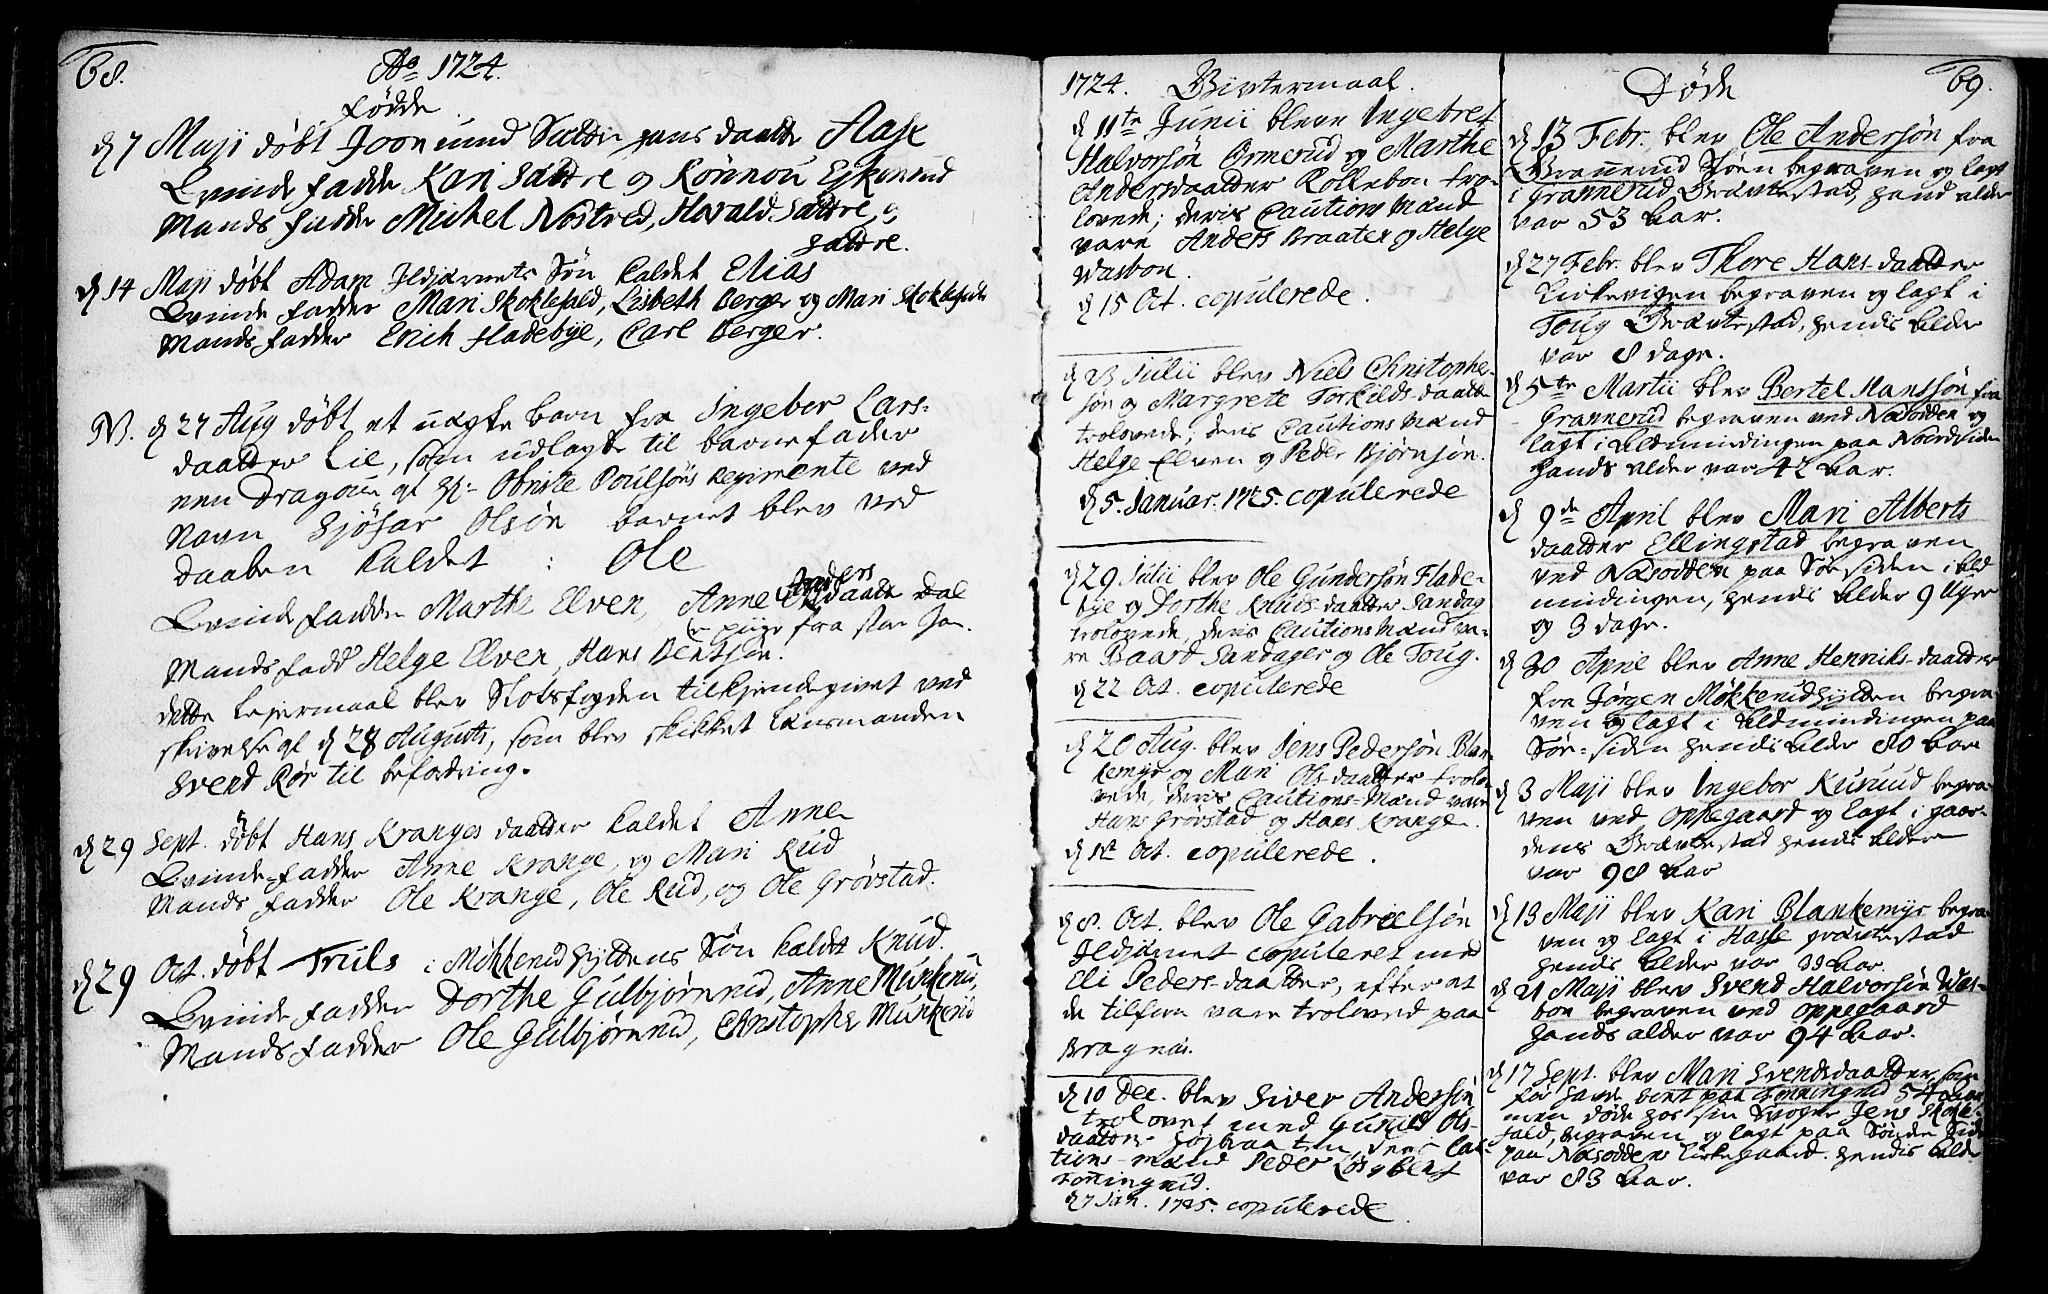 68.
Ao 1724.
Fødde
d 7 Maji døbt Joon daatter Aase
Qvinde fadde Kari Sættre og Rønnou
Mands fadder Michel Nostved, Harald Sættre, og
Sættre.
d 14 Maji døbt Adam Ildjarnets Søn kaldet Elias
Qvinde fadder Mari Skoklefald, Lisbeth Berger og Mari Skoklefald
Mands fadder Erich Fladebye, Carl Berger.
NB. d 27 Aug døbt et uægte barn fra Ingebor Lars-
daatter Lie, som udlagte til barnefader
een Dragoun af Hr. Obriste Poulsøns Regimente ved
Navn Sjøfar Olsøn barnet blev ved
daaben kaldet : Ole
Qvinde fadder Marthe Elven, Anne Anders daatt Dal
en piige fra
Mands fadd Helge Elven, Hans Bentsøn.
dette Lejermaal blev Slotsfogden tilkjendegivet ved
skrivelse af d 28 Augusti, som blev skikket Lensmanden
Svend Rør til befodring.
d 29 Sept. døbt Hans Kranges daatter kaldet Anne
Qvinde-fadder Anne Krange, og Mari Rud
Mands fadder Ole Krange, Ole Rud, og Ole Grøvstad.
d 29 Oct. døbt Truls i Mökkerudhyttens Søn kaldt Knud.
Qvinde fadder Dorthe Gulbjørnrud, Anne Munkerud,
Mands fadder Ole Gulbjørnrud, Christopher Munkerud
1724. Givtermaal.
d 11te Junii bleve Ingebret
Halvorsøn Ormerud og Marthe
Andersdaatter Kollebon tro-
lovede; deris Cautions Mænd
vare Anders Braaten og Helge
Wasbon.
d 15 Oct. copulerede.
d 23 Julii blev Niels Christopher-
søn og Margrete Torkilds-daatter
trolovede; deris Cautions Mænd
Helge Elven og Peder Bjørnsøn.
d 5. Januar. 1725. copulerede
d 29 Julii blev Ole Gundersøn Flade-
bye og Dorthe Knuds-daatter Sandag
trolovede, deris Cautions Mænd va-
re Baard Sandager og Ole Toug.
d 22 Oct. copulerede
d 20 Aug. blev Jens Pedersøn Blan-
kemyr og Mari Ols-daatter trolo-
vede, deris Cautions-Mænd vare
Hans Grøvstad og Hans Krange.
d 1st Oct. copulerede.
d 8. Oct. blev Ole Gabrielsøn
Ildjarnet copuleret med
Eli Peders-daatter, efter at
de tilforn vare trolovede paa
Bragnæs.
d 10 Dec. blev Siver Andersøn
trolovet med Gunild Ols-
daatter Højbraaten, deris Cau-
tions-mænd Peder og Bent
Tonningrud.
d 7 Jan. 1725. copulerede.
Døde
69.
d 13 Febr. blev Ole Andersøn fra
Grannerud Søen begraven og lagt
i Grannerud Gravested, hans alder
var 53 Aar.
d 27 Febr. blev Thore Hans-daatter
Kirkevigen begraven og lagt i
Toug Gravested, hendis Alder
var 8 dage.
d 5te Martii blev Bertel Hanssøn fra
Grannerud begraven ved Næsodden og
lagt i Aldmindingen paa Nordsiden
hands alder var 42 Aar.
d 9de April blev Mari Alberts
daatter Ellingstad begraven
ved Næsodden paa Sørsiden i ald
mindingen, hendis Alder 9 Uger
og 3 dage.
d 30 April blev Anne Henriks-daatter
fra Jørgen Mökkerudhytten begra-
ven og lagt i Aldmindingen paa
Sør-siden hendis Alder 80 Aar
d 3 Maji blev Ingebor Kurud begra-
ven ved Oppegaard og lagt i gaar-
dens Gravested hendis Alder
var 98 Aar
d 13 Maji blev Kari Blankemyr begra-
ven og lagt i Hasle gravested
hendis Alder var 99 Aar.
d 21 Maji blev Svend Halvorsøn Was-
bon begraven ved Oppegaard
hands alder var 94 Aar.
d 17 Sept. blev Mari Svendsdaatter, som
før havde boet paa Tonningrud 54 Aar
men døde hos sin Svoger Jens Skokl-
fald, begraven og lagt paa Søndre Side
paa Næsoddens Kirkegaard. hendis Alder
var 83 Aar.